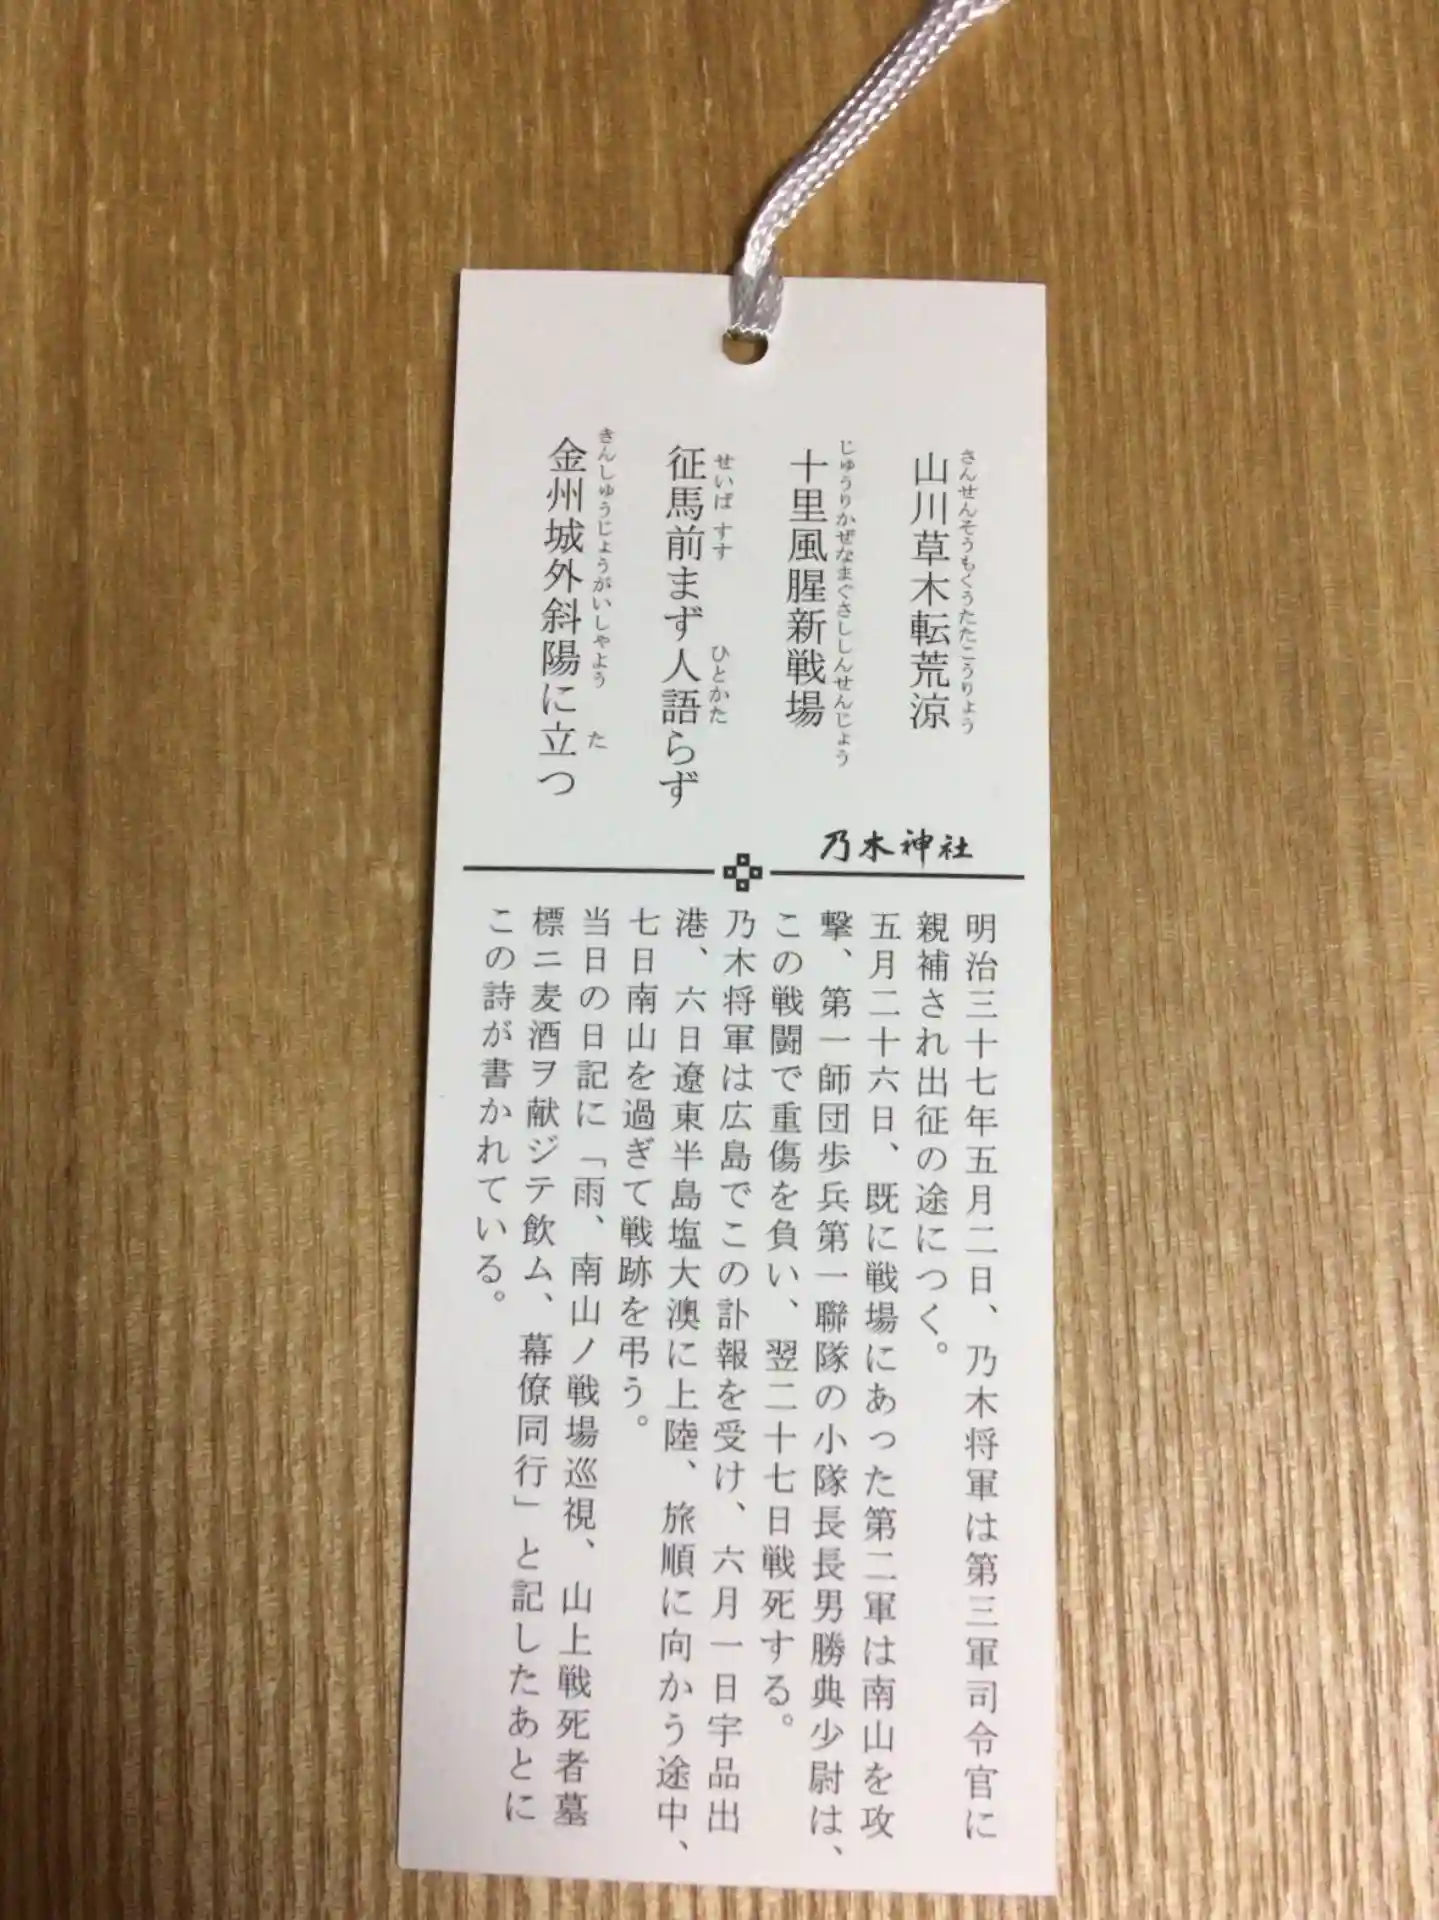 さんせんそうもくうたたこうりょう
山川草木転荒涼
じゅうりかぜなまぐさししんせんじょう
十里風腥新戦場
せいば すす ひとかた
征馬前まず人語らず
きんしゅうじょうがいしゃよう た
金州城外斜陽に立つ
乃木神社
明治三十七年五月二日、乃木将軍は第三軍司令官に
親補され出征の途につく。
五月二十六日、既に戦場にあった第二軍は南山を攻
撃、第一師団歩兵第一聯隊の小隊長長男勝典少尉は、
この戦闘で重傷を負い、翌二十七日戦死する。
乃木将軍は広島でこの訃報を受け、六月一日宇品出
港、六日遼東半島塩大澳に上陸、旅順に向かう途中、
七日南山を過ぎて戦跡を弔う。
当日の日記に「雨、南山ノ戦場巡視、山上戦死者墓
標ニ麦酒ヲ献ジテ飲ム、幕僚同行」と記したあとに
この詩が書かれている。